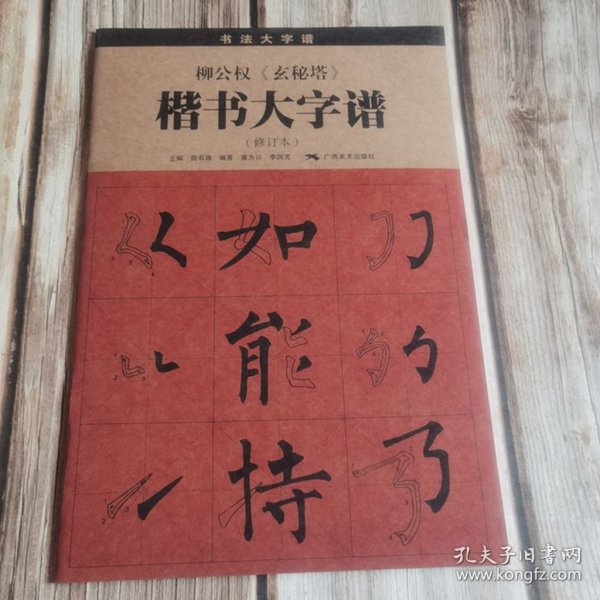 书法大字谱
柳公权《玄秘塔》
楷书大字谱
（修订本）
主编 编著 黄为川 李润芳 广西美术出版社
如
能
持
孔夫子旧书网
www.kongfz.com